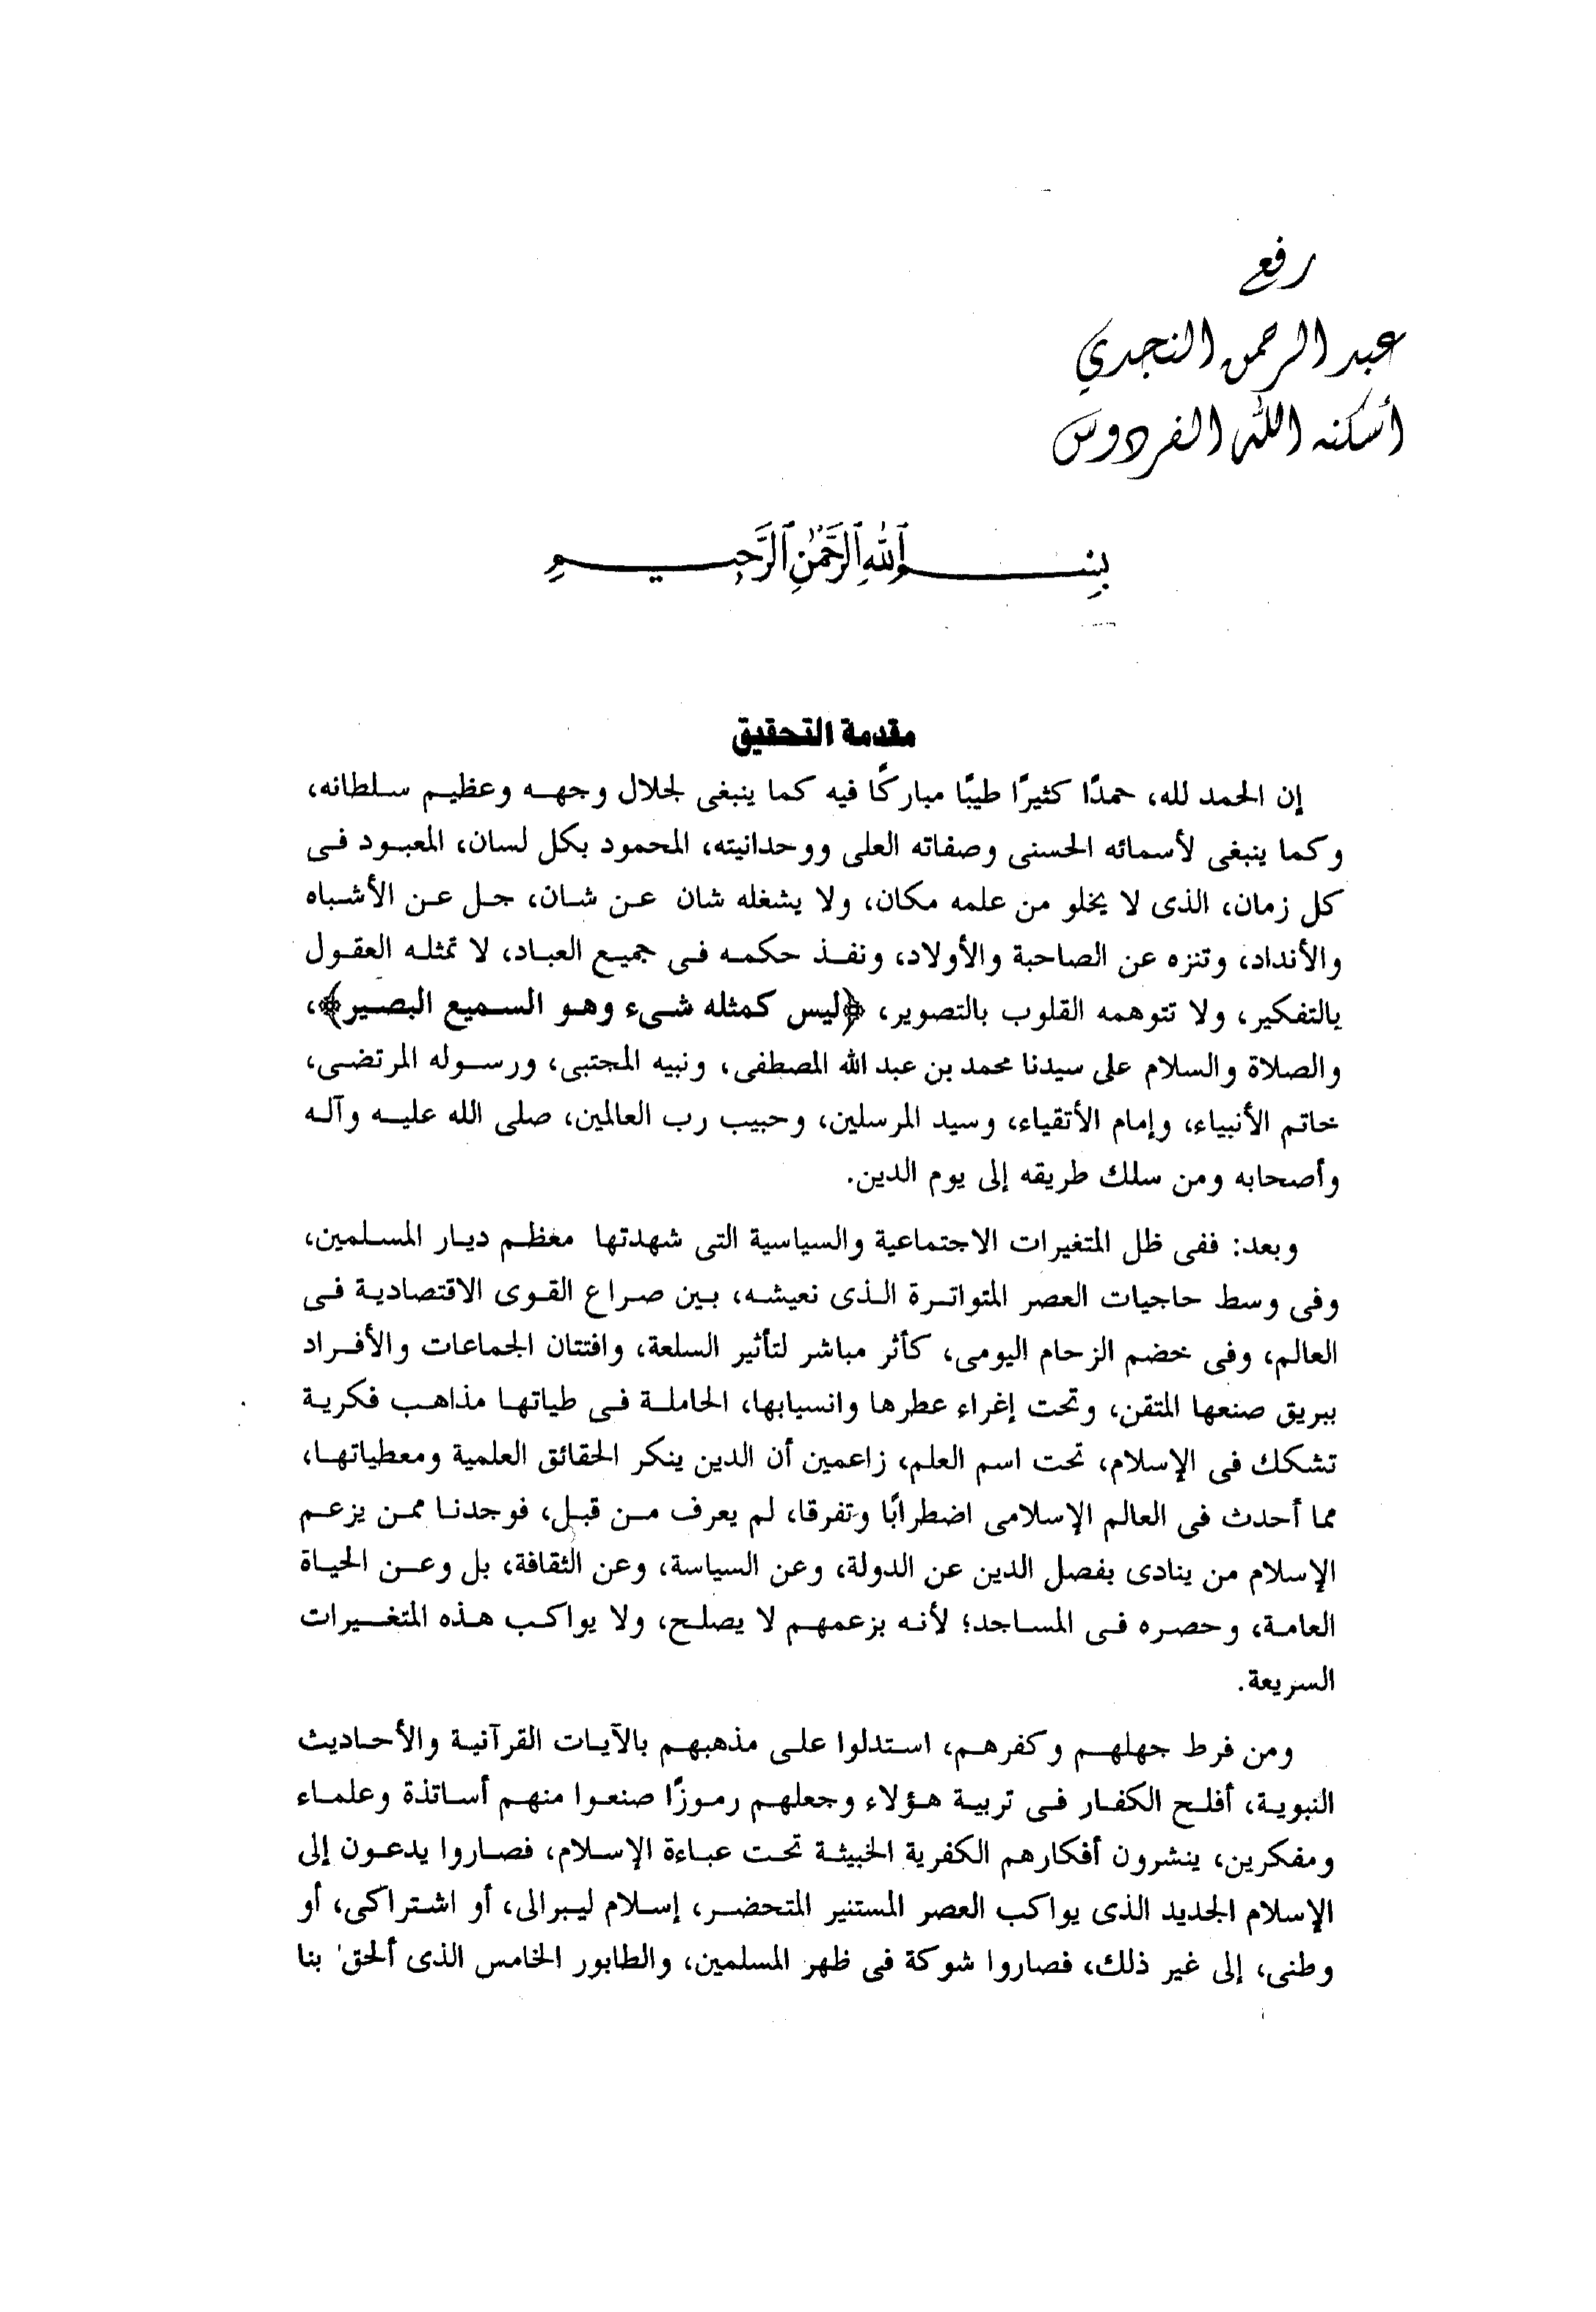 رفع
عبد الرحمن النجدي
أسكنه الله الفردوس
بِسْمِ ٱللَّهِ ٱلرَّحْمَٰنِ ٱلرَّحِيمِ
مقدمة التحقيق
إن الحمد لله، حمدًا كثيرًا طيبًا مباركًا فيه كما ينبغى لجلال وجهه وعظيم سلطانه،
وكما ينبغى لأسمائه الحسنى وصفاته العلى ووحدانيته، المحمود بكل لسان، المعبود فى
كل زمان، الذى لا يخلو من علمه مكان، ولا يشغله شان عن شان، جل عن الأشباه
والأنداد، وتنزه عن الصاحبة والأولاد، ونفذ حكمه فى جميع العباد، لا تمثله العقول
بالتفكير، ولا تتوهمه القلوب بالتصوير، ﴿ليس كمثله شىء وهو السميع البصير﴾،
والصلاة والسلام على سيدنا محمد بن عبد الله المصطفى، ونبيه المجتبى، ورسوله المرتضى،
خاتم الأنبياء، وإمام الأتقياء، وسيد المرسلين، وحبيب رب العالمين، صلى الله عليه وآله
وأصحابه ومن سلك طريقه إلى يوم الدين.
وبعد: ففى ظل المتغيرات الاجتماعية والسياسية التى شهدتها معظم ديار المسلمين،
وفى وسط حاجيات العصر المتواترة الذى نعيشه، بين صراع القوى الاقتصادية فى
العالم، وفى خضم الزحام اليومى، كأثر مباشر لتأثير السلعة، وافتتان الجماعات والأفراد
ببريق صنعها المتقن، وتحت إغراء عطرها وانسيابها، الحاملة فى طياتها مذاهب فكرية
تشكك فى الإسلام، تحت اسم العلم، زاعمين أن الدين ينكر الحقائق العلمية ومعطياتها،
مما أحدث فى العالم الإسلامى اضطرابًا وتفرقا، لم يعرف من قبل، فوجدنا ممن يزعم
الإسلام من ينادى بفصل الدين عن الدولة، وعن السياسة، وعن الثقافة، بل وعن الحياة
العامة، وحصره فى المساجد؛ لأنه بزعمهم لا يصلح، ولا يواكب هذه المتغيرات
السريعة.
ومن فرط جهلهم وكفرهم، استدلوا على مذهبهم بالآيات القرآنية والأحاديث
النبوية، أفلح الكفار فى تربية هؤلاء وجعلهم رموزًا صنعوا منهم أساتذة وعلماء
ومفكرين، ينشرون أفكارهم الكفرية الخبيثة تحت عباءة الإسلام، فصاروا يدعون إلى
الإسلام الجديد الذى يواكب العصر المستنير المتحضر، إسلام ليبرالى، أو اشتراكى، أو
وطنى، إلى غير ذلك، فصاروا شوكة فى ظهر المسلمين، والطابور الخامس الذى ألحق بنا